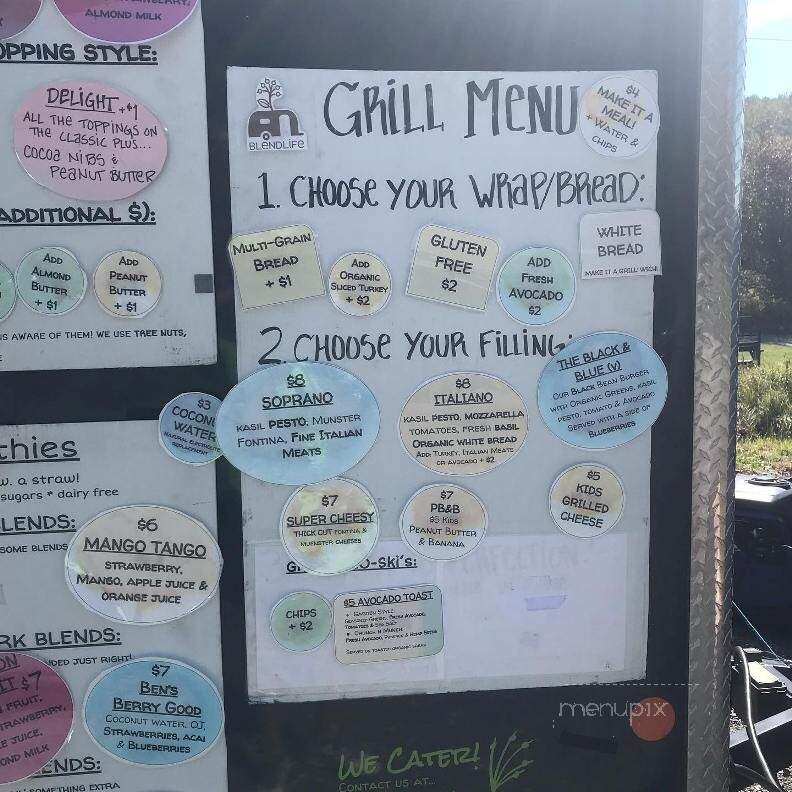 ALMOND MILK
OPPING STYLE:
DELIGHT +$1
ALL THE TOPPINGS ON
THE CLASSIC PLUS...
COCOA NIBS &
PEANUT BUTTER
ADDITIONAL $):
ADD
ALMOND
BUTTER
+ $1
ADD
PEANUT
BUTTER
+ $1
S AWARE OF THEM! WE USE TREE NUTS,
$3
COCONU
WATER
thies
w. a straw!
sugars * dairy free
LENDS:
SOME BLENDS
$6
MANGO TANGO
STRAWBERRY,
MANGO, APPLE JUICE &
ORANGE JUICE
RK BLENDS:
DED JUST RIGHT!
$7
FRUIT,
TRAWBERRY,
E JUICE,
OND MILK
$7
BEN'S
BERRY GOOD
COCONUT WATER, OJ,
STRAWBERRIES, ACAI
& BLUEBERRIES
ENDS:
SOMETHING EXTRA
BLENDLIFE
GRILL MENU
$4
MAKE IT A
MEAL!
+ WATER &
CHIPS
1. CHOOSE YOUR WRAP/BREAD:
MULTI-GRAIN
BREAD
+ $1
ADD
ORGANIC
SLICED TURKEY
+ $2
GLUTEN
FREE
$2
ADD
FRESH
AVOCADO
$2
WHITE
BREAD
MAKE IT A GRILL WICH
2. CHOOSE YOUR FILLING:
$8
SOPRANO
KASIL PESTO, MUNSTER
FONTINA, FINE ITALIAN
MEATS
$8
ITALIANO
KASIL PESTO, MOZZARELLA
TOMATOES, FRESH BASIL
ORGANIC WHITE BREAD
ADD: TURKEY, ITALIAN MEATS
OR AVOCADO + $2
THE BLACK &
BLUE (V)
OUR BLACK BEAN BURGER
WITH ORGANIC GREENS, KASIL
PESTO, TOMATO & AVOCADO
SERVED WITH A SIDE OF
BLUEBERRIES
$7
SUPER CHEESY
THICK CUT FONTINA &
MUENSTER CHEESES
$7
PB&B
$5 KIDS
PEANUT BUTTER
& BANANA
$5
KIDS
GRILLED
CHEESE
O-SKI'S:
CHIPS
+ $2
$5 AVOCADO TOAST
FRESH AVOCADO,
menupix
WE CATER!
CONTACT US AT...